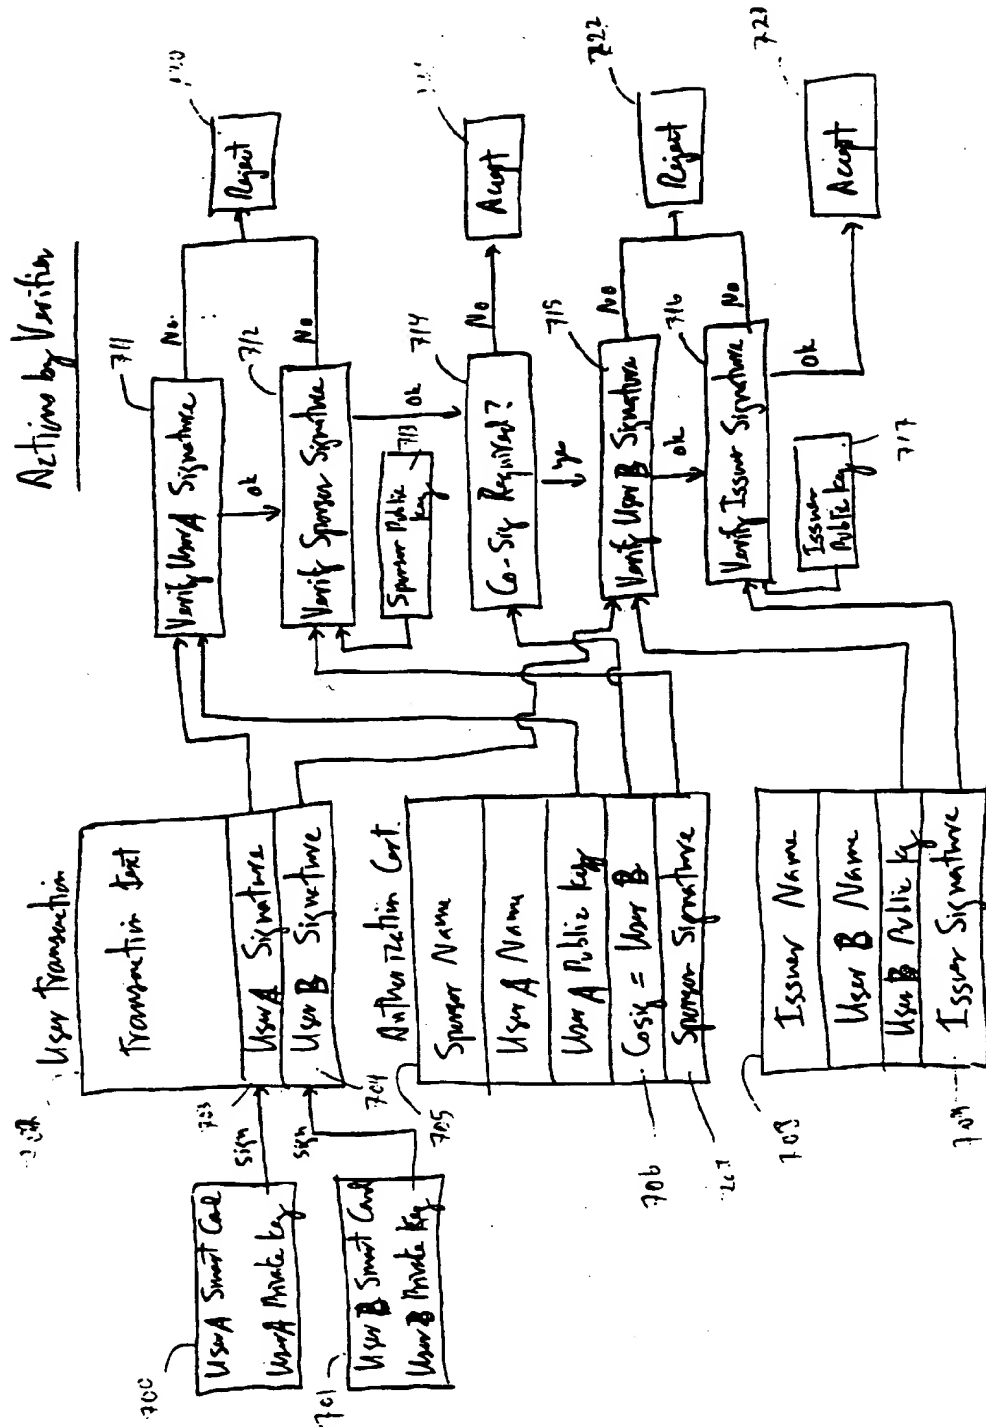 Actions by Verifier
700
User A Smart Card
User A Private Key
701
User B Smart Card
User B Private Key
sign
sign
User Transaction
Transaction text
User A Signature
User B Signature
703
704
Authorization Cert.
705
Sponsor Name
User A Name
User A Public Key
Cosig = User B
Sponsor Signature
706
707
708
Issuer Name
User B Name
User B Public Key
Issuer Signature
709
711
Verify User A Signature
No
ok
712
Verify Sponsor Signature
No
ok
713
Sponsor Public Key
714
Co-Sig Required?
No
yes
715
Verify User B Signature
No
ok
716
Verify Issuer Signature
No
ok
Issuer Public Key
717
Reject
Accept
722
Reject
723
Accept